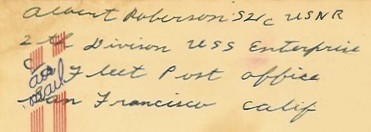 Albert Roberson S2/c USNR
2th Divison USS Enterprise
c/o Fleet Post office
San Francisco Calif
air mail